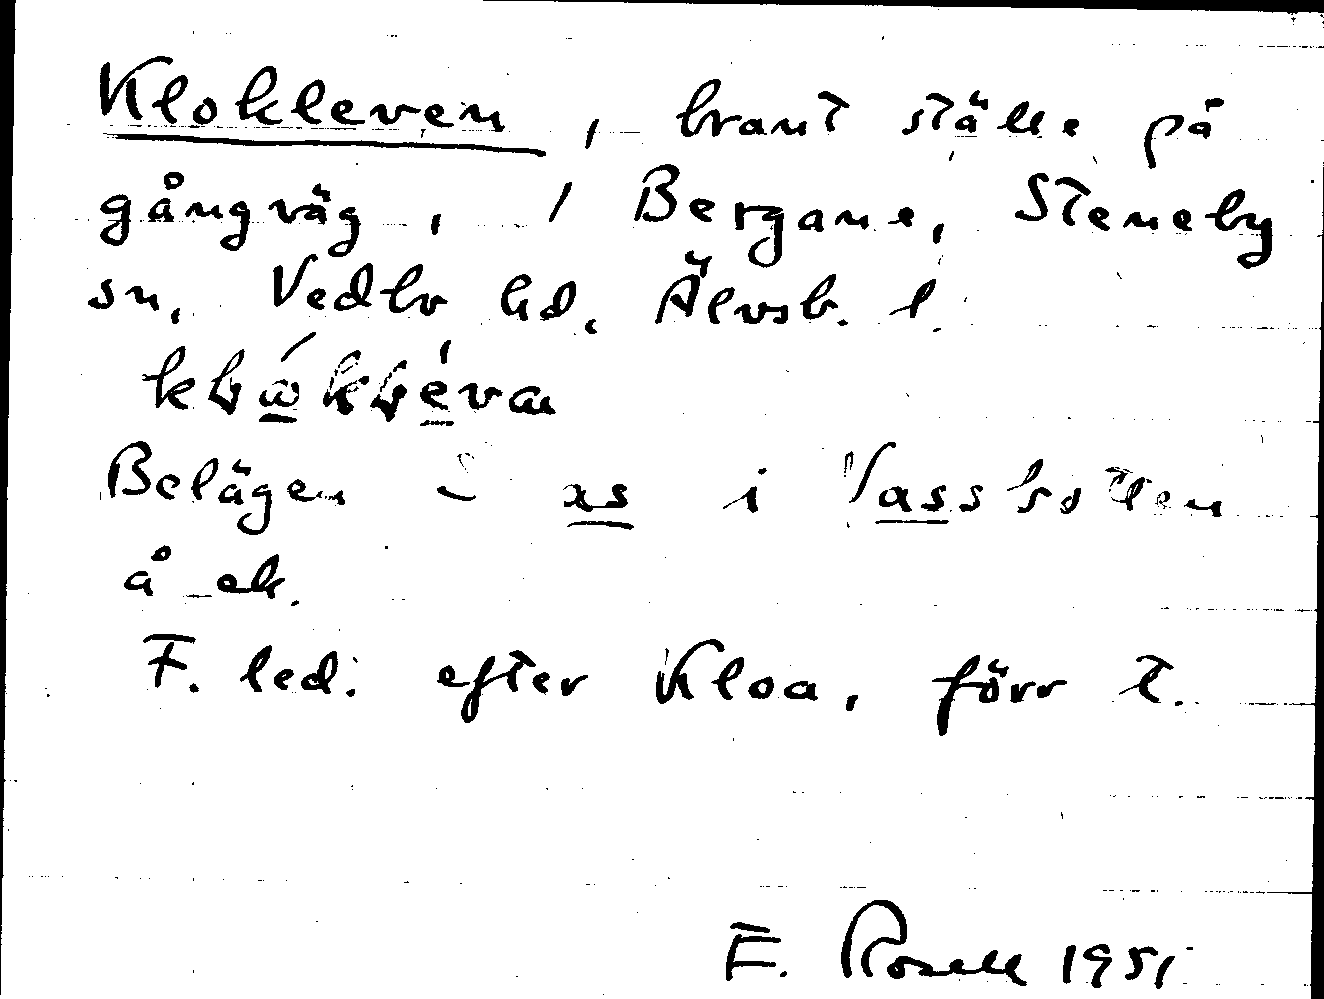 Klokleven, brant ställe på
gångväg, i Bergane, Steneby
sn, Vedbo hd, Älvsb. l.
Belägen as i Vassbotten
å ek.
F. led: efter Kloa, förr t.
E. Rosell 1951